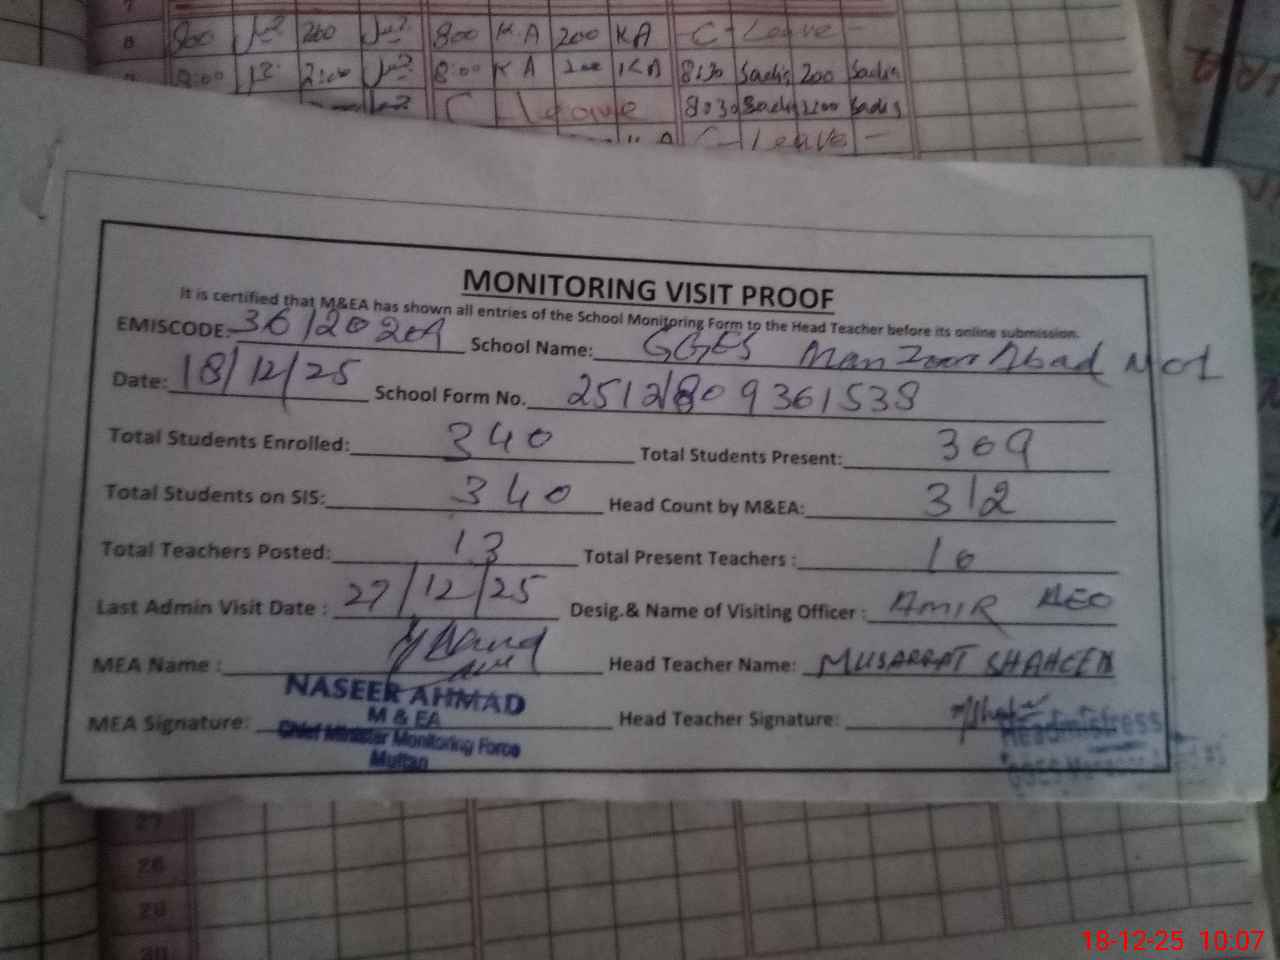 6 800 200 800 K.A 200 KA C-Leave -
8:00 2:00 8:00 KA 200 KA 8:30 Sadis 200 Sadis
C Leave 8:30 Sadis 200 Sadis
C-Leave -
MONITORING VISIT PROOF
It is certified that M&EA has shown all entries of the School Monitoring Form to the Head Teacher before its online submission.
EMISCODE: 36120209 School Name: GGES Manzoor Abad No1
Date: 18/12/25 School Form No. 2512809361538
Total Students Enrolled: 340 Total Students Present: 309
Total Students on SIS: 340 Head Count by M&EA: 312
Total Teachers Posted: 13 Total Present Teachers : 10
Last Admin Visit Date : 27/12/25 Desig.& Name of Visiting Officer : AMIR AEO
MEA Name : Head Teacher Name: MUSARRAT SHAHEEN
NASEER AHMAD
M & EA
MEA Signature: Head Teacher Signature:
Chief Minister Monitoring Force
Multan
Headmistress
GGES
27
28
18-12-25 10:07